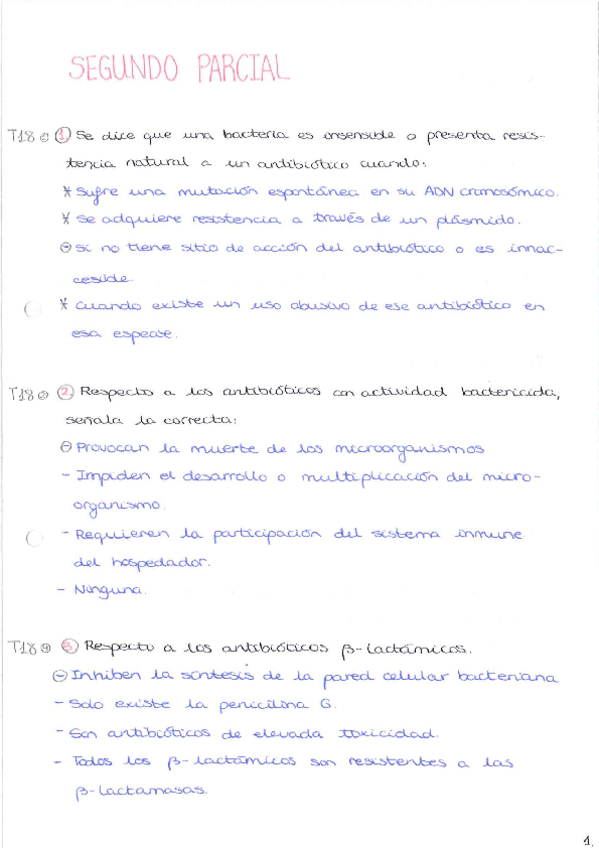 SEGUNDO PARCIAL
T18 ① Se dice que una bacteria es insensible o presenta resis-
tencia natural a un antibiótico cuando:
* Sufre una mutación espontánea en su ADN cromosómico.
* Se adquiere resistencia a través de un plásmido.
⊖ Si no tiene sitio de acción del antibiótico o es innac-
cesible.
* Cuando existe un uso abusivo de ese antibiótico en
esa especie.
T18 ② Respecto a los antibióticos con actividad bactericida,
señala la correcta:
⊖ Provocan la muerte de los microorganismos
- Impiden el desarrollo o multiplicación del micro-
organismo.
- Requieren la participación del sistema inmune
del hospedador.
- Ninguna.
T18 ③ Respecto a los antibióticos β-lactámicos.
⊖ Inhiben la síntesis de la pared celular bacteriana
- Solo existe la penicilina G.
- Son antibióticos de elevada toxicidad.
- Todos los β-lactámicos son resistentes a las
β-lactamasas.
1